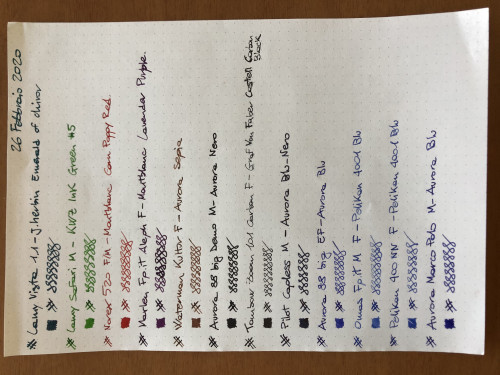 26 Febbraio 2020
# Lamy Vista 1.1 - J. Herbin Emerald of chivor
# Lamy Safari M - KWZ Ink Green #5
# Norex 520 F/M - Montblanc Corn Poppy Red.
# Marlen Fp.it Aleph F - Montblanc Lavender Purple.
# Waterman Kultur F - Aurora Sepia
# Aurora 88 big Demo M - Aurora Nero
# Tombow Zoom 101 Carbon F - Graf Von Faber Castell Carbon Black
# Pilot Capless M - Aurora Blu-Nero
# Aurora 88 big EF - Aurora Blu
# Omas Fp.it M F - Pelikan 4001 Blu
# Pelikan 400 NN F - Pelikan 4001 Blu
# Aurora Marco Polo M - Aurora Blu